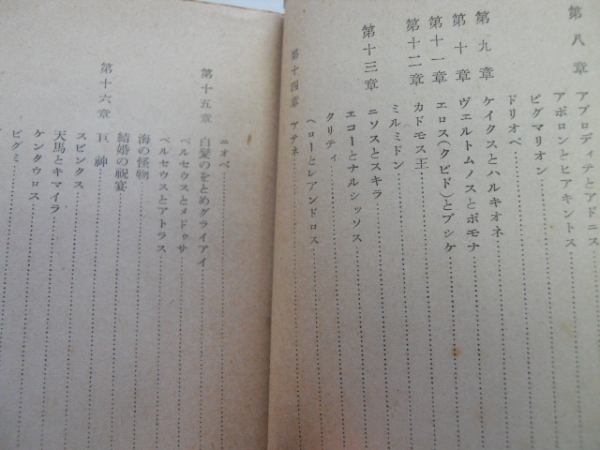 第八章 アプロディテとアドニス
アポロンとヒアキントス
ピグマリオン
ドリオペ
第九章 ケイクスとハルキオネ
第十章 ヴェルトムノスとポモナ
第十一章 エロス(クピド)とプシケ
第十二章 カドモス王
ミルミドン
第十三章 ニソスとスキラ
エコーとナルシッソス
クリティ
ヘローとレアンドロス
第十四章 アテネ
ニオベ
第十五章 白髪のをとめグライアイ
ペルセウスとメドゥサ
ペルセウスとアトラス
海の怪物
結婚の祝宴
第十六章 巨神
スピンクス
天馬とキマイラ
ケンタウロス
ピグミ